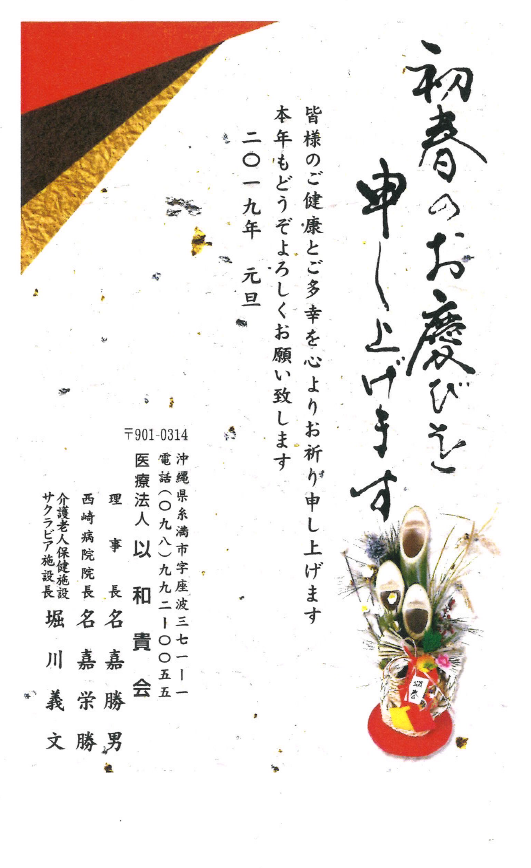 初春のお慶びを
申し上げます
皆様のご健康とご多幸を心よりお祈り申し上げます
本年もどうぞよろしくお願い致します
二〇一九年 元旦
〒901-0314
沖縄県糸満市字座波三七一ー一
電話(〇九八)九九二ー〇〇五五
医療法人 以和貴会
理事長 名嘉勝男
西崎病院院長 名嘉栄勝
介護老人保健施設
サクラビア施設長 堀川義文